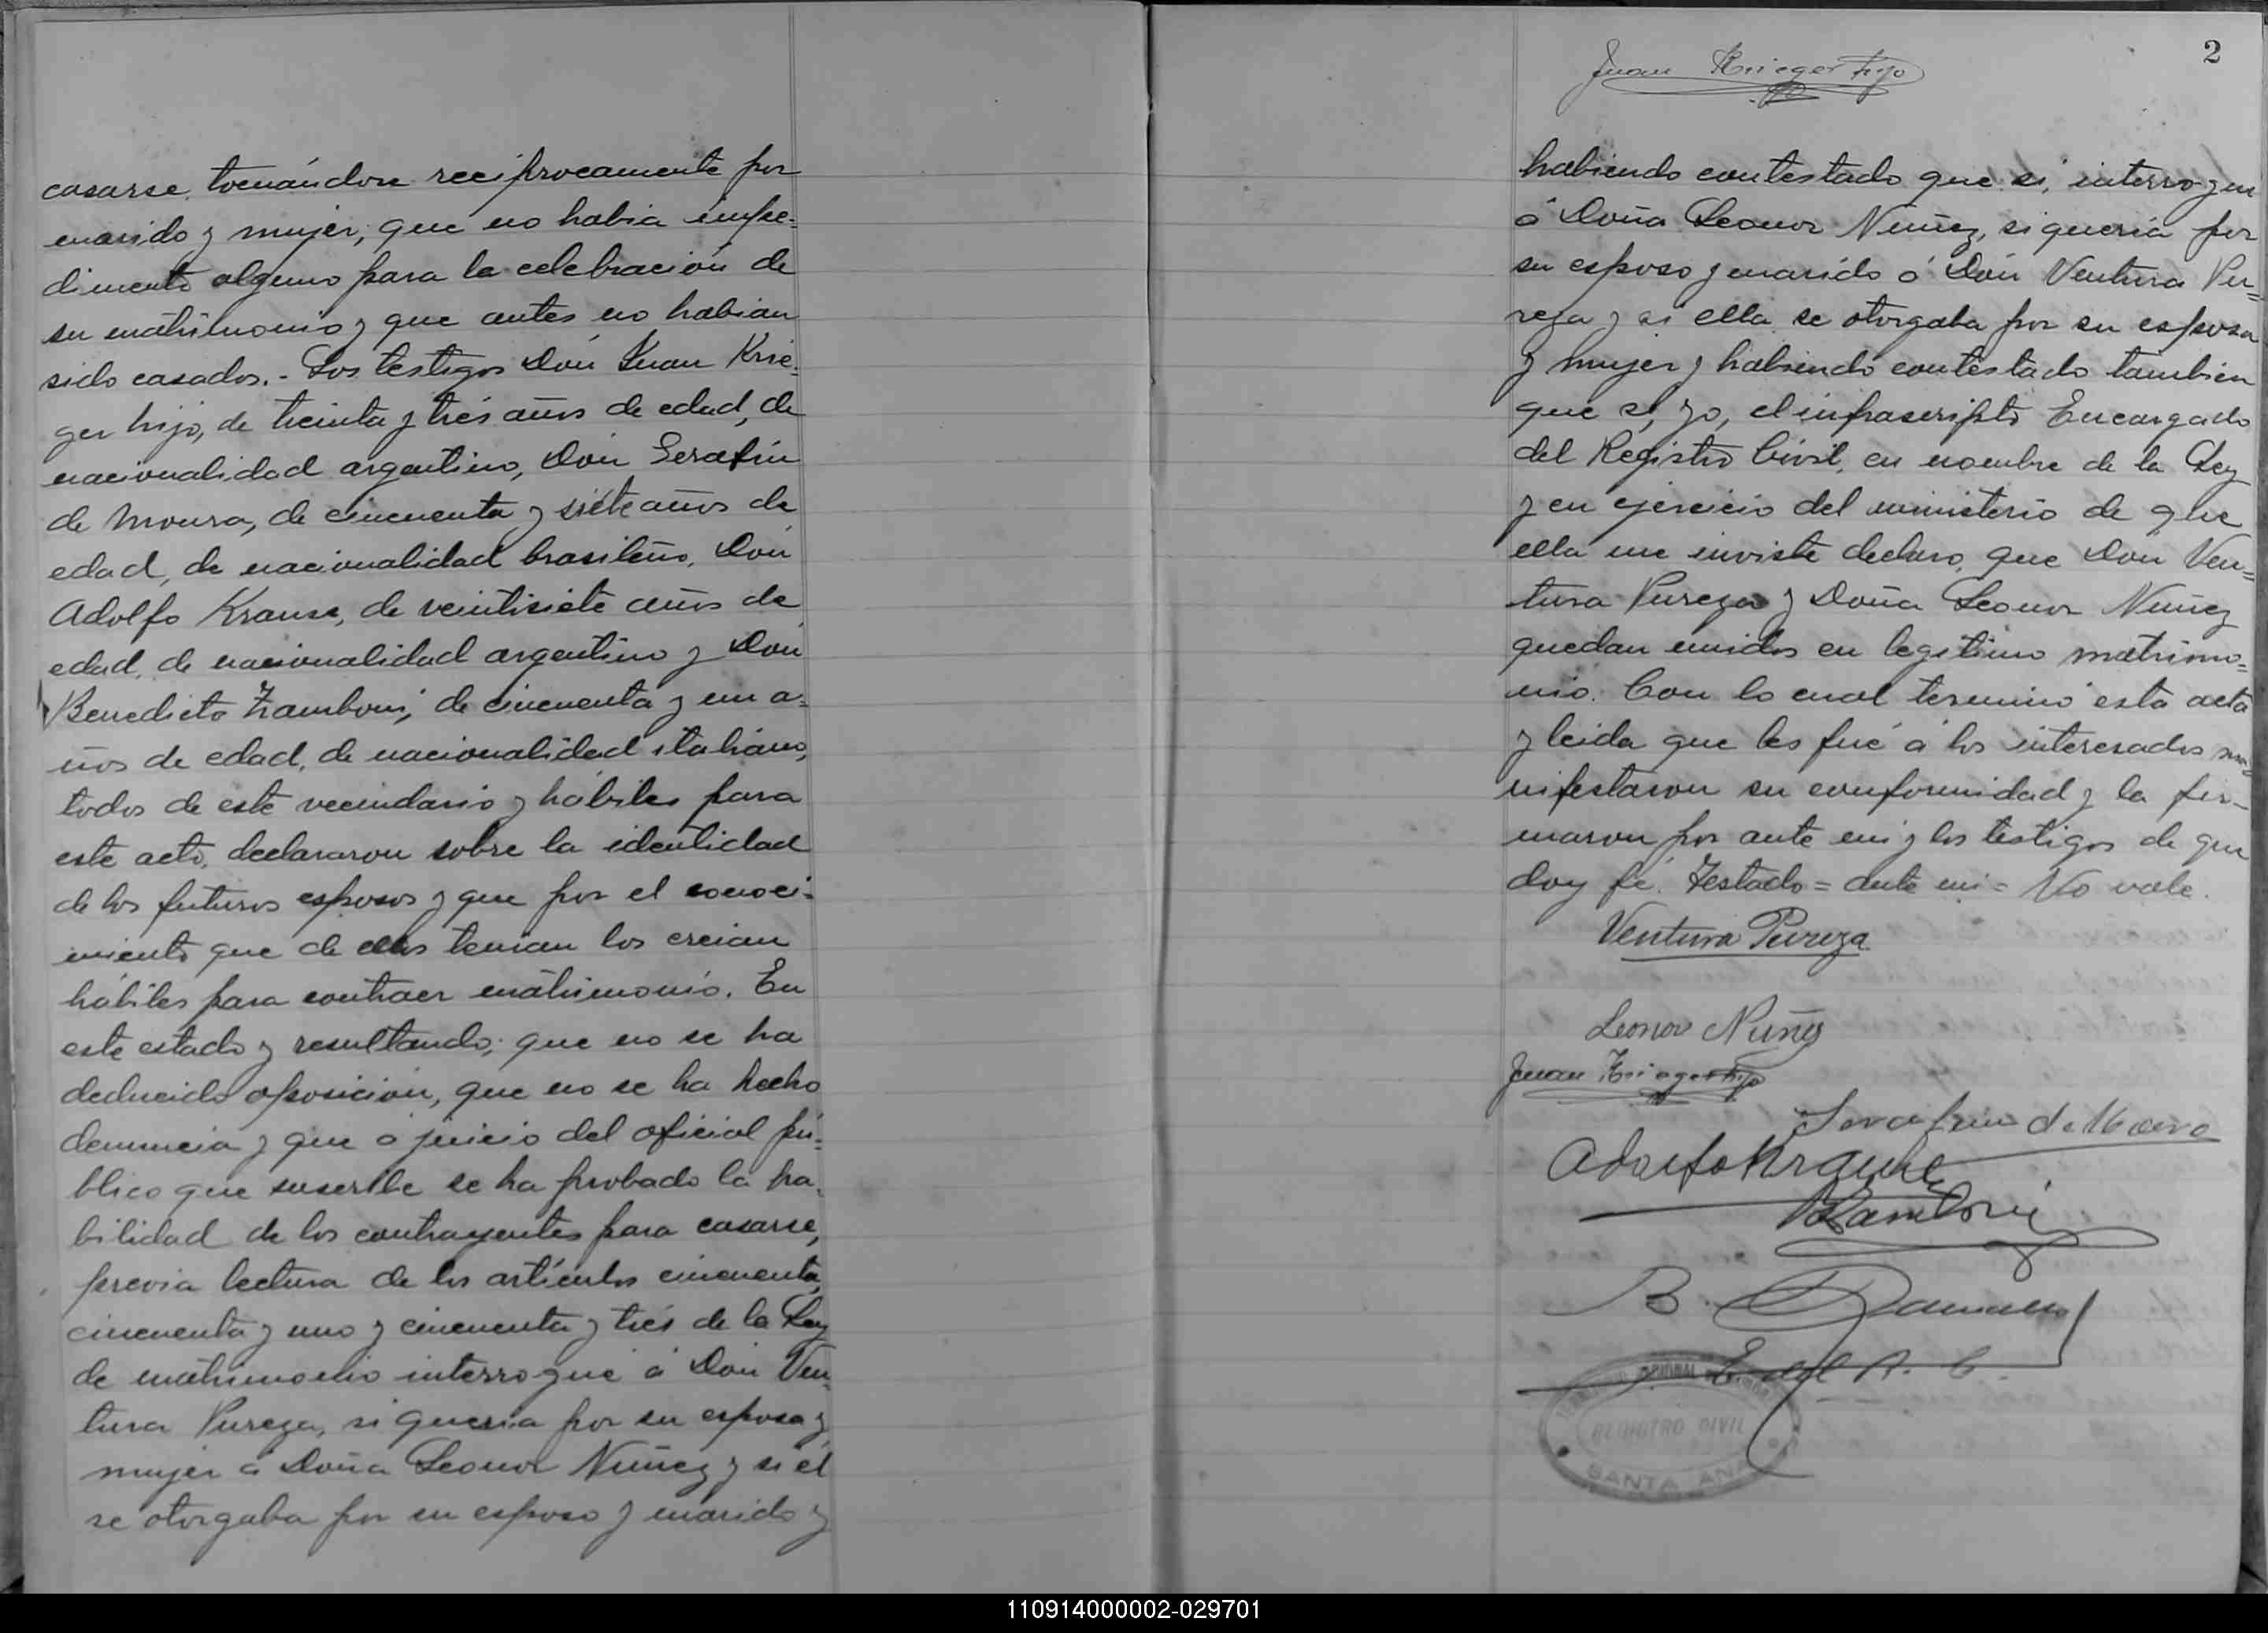 casarse, tomándose recíprocamente por
marido y mujer; que no habia impe-
dimento alguno para la celebración de
su matrimonio y que antes no habian
sido casados.- Los testigos Don Juan Krie-
ger hijo, de treinta y trés años de edad, de
nacionalidad argentino, Don Serafin
de Moura, de cincuenta y siete años de
edad, de nacionalidad brasileño, Don
Adolfo Krause, de veintisiete años de
edad, de nacionalidad argentino y Don
Benedicto Zamboni, de cincuenta y un a-
ños de edad, de nacionalidad italiano,
todos de este vecindario y hábiles para
este acto, declararon sobre la identidad
de los futuros esposos y que por el conoci-
miento que de ellos tenian los creian
hábiles para contraer matrimonio. En
este estado y resultando; que no se ha
deducido oposicion, que no se ha hecho
denuncia y que a juicio del oficial pú-
blico que suscribe se ha probado la ha-
bilidad de los contrayentes para casarse,
previa lectura de los artículos cincuenta,
cincuenta y uno y cincuenta y trés de la Ley
de matrimonio interrogué á Don Ven-
tura Pureza, si queria por su esposa y
mujer á Doña Leonor Nuñez y si él
se otorgaba por su esposo y marido y
2
Juan Krieger hijo
habiendo contestado que si, interrogué
á Doña Leonor Nuñez, si queria por
su esposo y marido á Don Ventura Pu=
reza y si ella se otorgaba por su esposa
y mujer y habiendo contestado tambien
que si, yo, el infrascripto Encargado
del Registro Civil, en nombre de la Ley
y en ejercicio del ministerio de que
ella me inviste declaro, que Don Ven=
tura Pureza y Doña Leonor Nuñez
quedan unidos en legitimo matrimo=
nio. Con lo cual terminó esta acta
y leida que les fué á los interesados ma-
nifestaron su conformidad y la fir-
maron por ante mi y los testigos de que
doy fé. Testado = ante mi = No vale.
Ventura Pureza
Leonor Nuñez
Juan Krieger hijo
Serafin de Moura
Adolfo Krause
BZamboni
B.
REGISTRO CIVIL
SANTA ANA
110914000002-029701